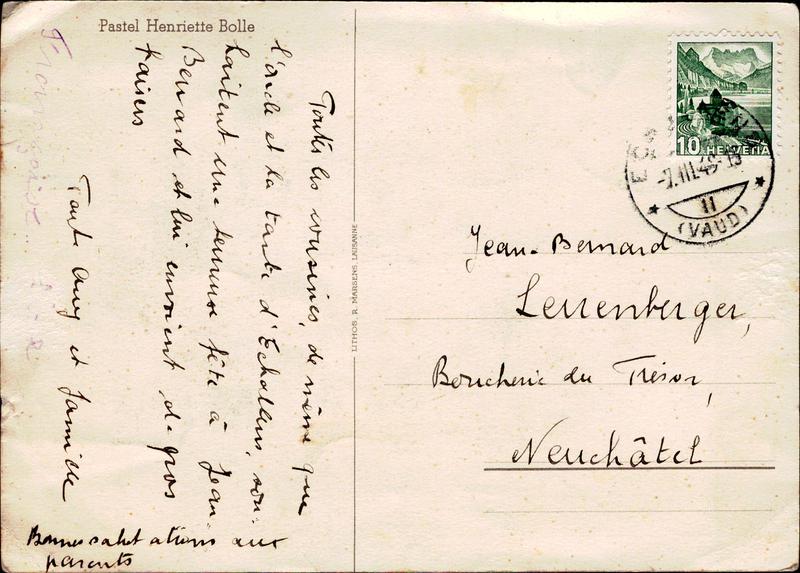 Pastel Henriette Bolle
Toutes les cousines, de même que
l'oncle et la tante d'Echallens, sou-
haitent une heureuse fête à Jean-
Bernard et lui envoient de gros
baisers
Tante Amy et famille
Bonnes salutations aux
parents
LITHOS R. MARSENS LAUSANNE
10 HELVETIA
II
(VAUD)
Jean-Bernard
Leuenberger,
Boucherie du Trésor,
Neuchâtel